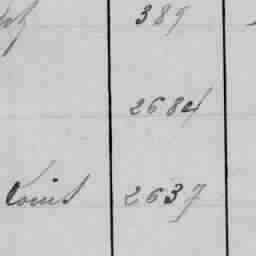 389
2684
Louis 2637